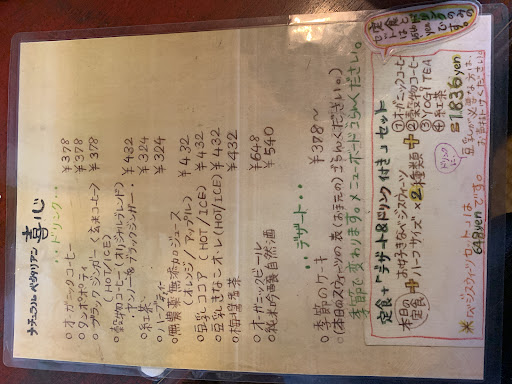 ナチュラル・ベジタリアン 喜心
・・ドリンク・・
○オーガニックコーヒー ¥378
○タンポポティー ¥378
○ブラックジンガー（玄米コーヒー） ¥378
(HOT/ICE)
○穀物コーヒー（オリジナルブレンド） ¥432
ヤンノー&ブラックジンガー
○紅茶 ¥324
○ハーブティー ¥324
○無農薬無添加ジュース ¥432
(オレンジ/アップル)
○豆乳ココア (HOT/ICE) ¥432
○豆乳きなこオレ(HOT/ICE) ¥432
○梅醤番茶 ¥432
○オーガニックビール ¥648
○純米吟醸自然酒 ¥540
・・デザート・・
○季節のケーキ ¥378〜
(本日のスウィーツの表(お手元の)ごらんください。)
季節で変わります。メニューボードごらんください。
定食+「デザート&ドリンク付き」セット
本日の定食 + お好きなベジスウィーツ ハーフサイズ×2種類 +
①オーガニックコーヒー
②穀物コーヒー
③YOGI TEA
④紅茶
1,836yen
ドリンクに
豆乳が必要な方は、
お声掛けください。
※「ベジスウィーツセット」は
648yenです。